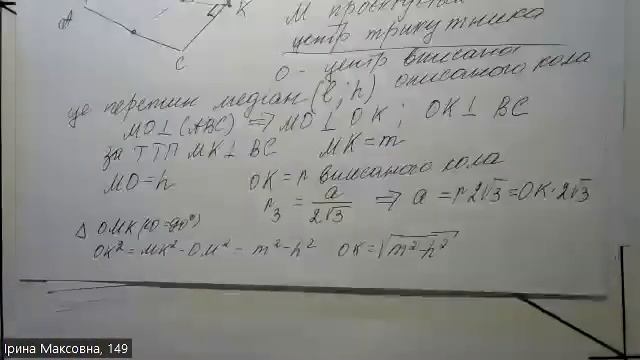 A
K
C
M проектується
центр трикутника
O - центр вписаного
описаного кола
це перетин медіан (l; h)
MO⊥(ABC) ⇒ MO⊥OK; OK⊥BC
за ТТП MK⊥BC MK=m
MO=h OK=r вписаного кола
r₃ = a/2√3 ⇒ a = r2√3 = OK·2√3
△ OMK(∠O=90°)
OK² = MK² - OM² = m² - h² OK=√m²-h²
Ірина Максовна, 149